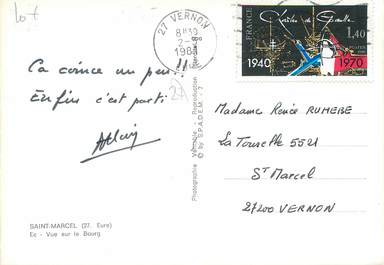 lot
27 VERNON
8H30
1981
EURE
FRANCE
Charles de Gaulle
1,40
POSTES
1940
1970
Ca coince un peu !!
Enfin c'est parti
Madame Renée RUMEBE
La Tourelle 5521
St Marcel
27200 VERNON
Photographie Véritable - Reproduction
© by S.P.A.D.E.M. - 7
SAINT-MARCEL (27. Eure)
Ec - Vue sur le Bourg